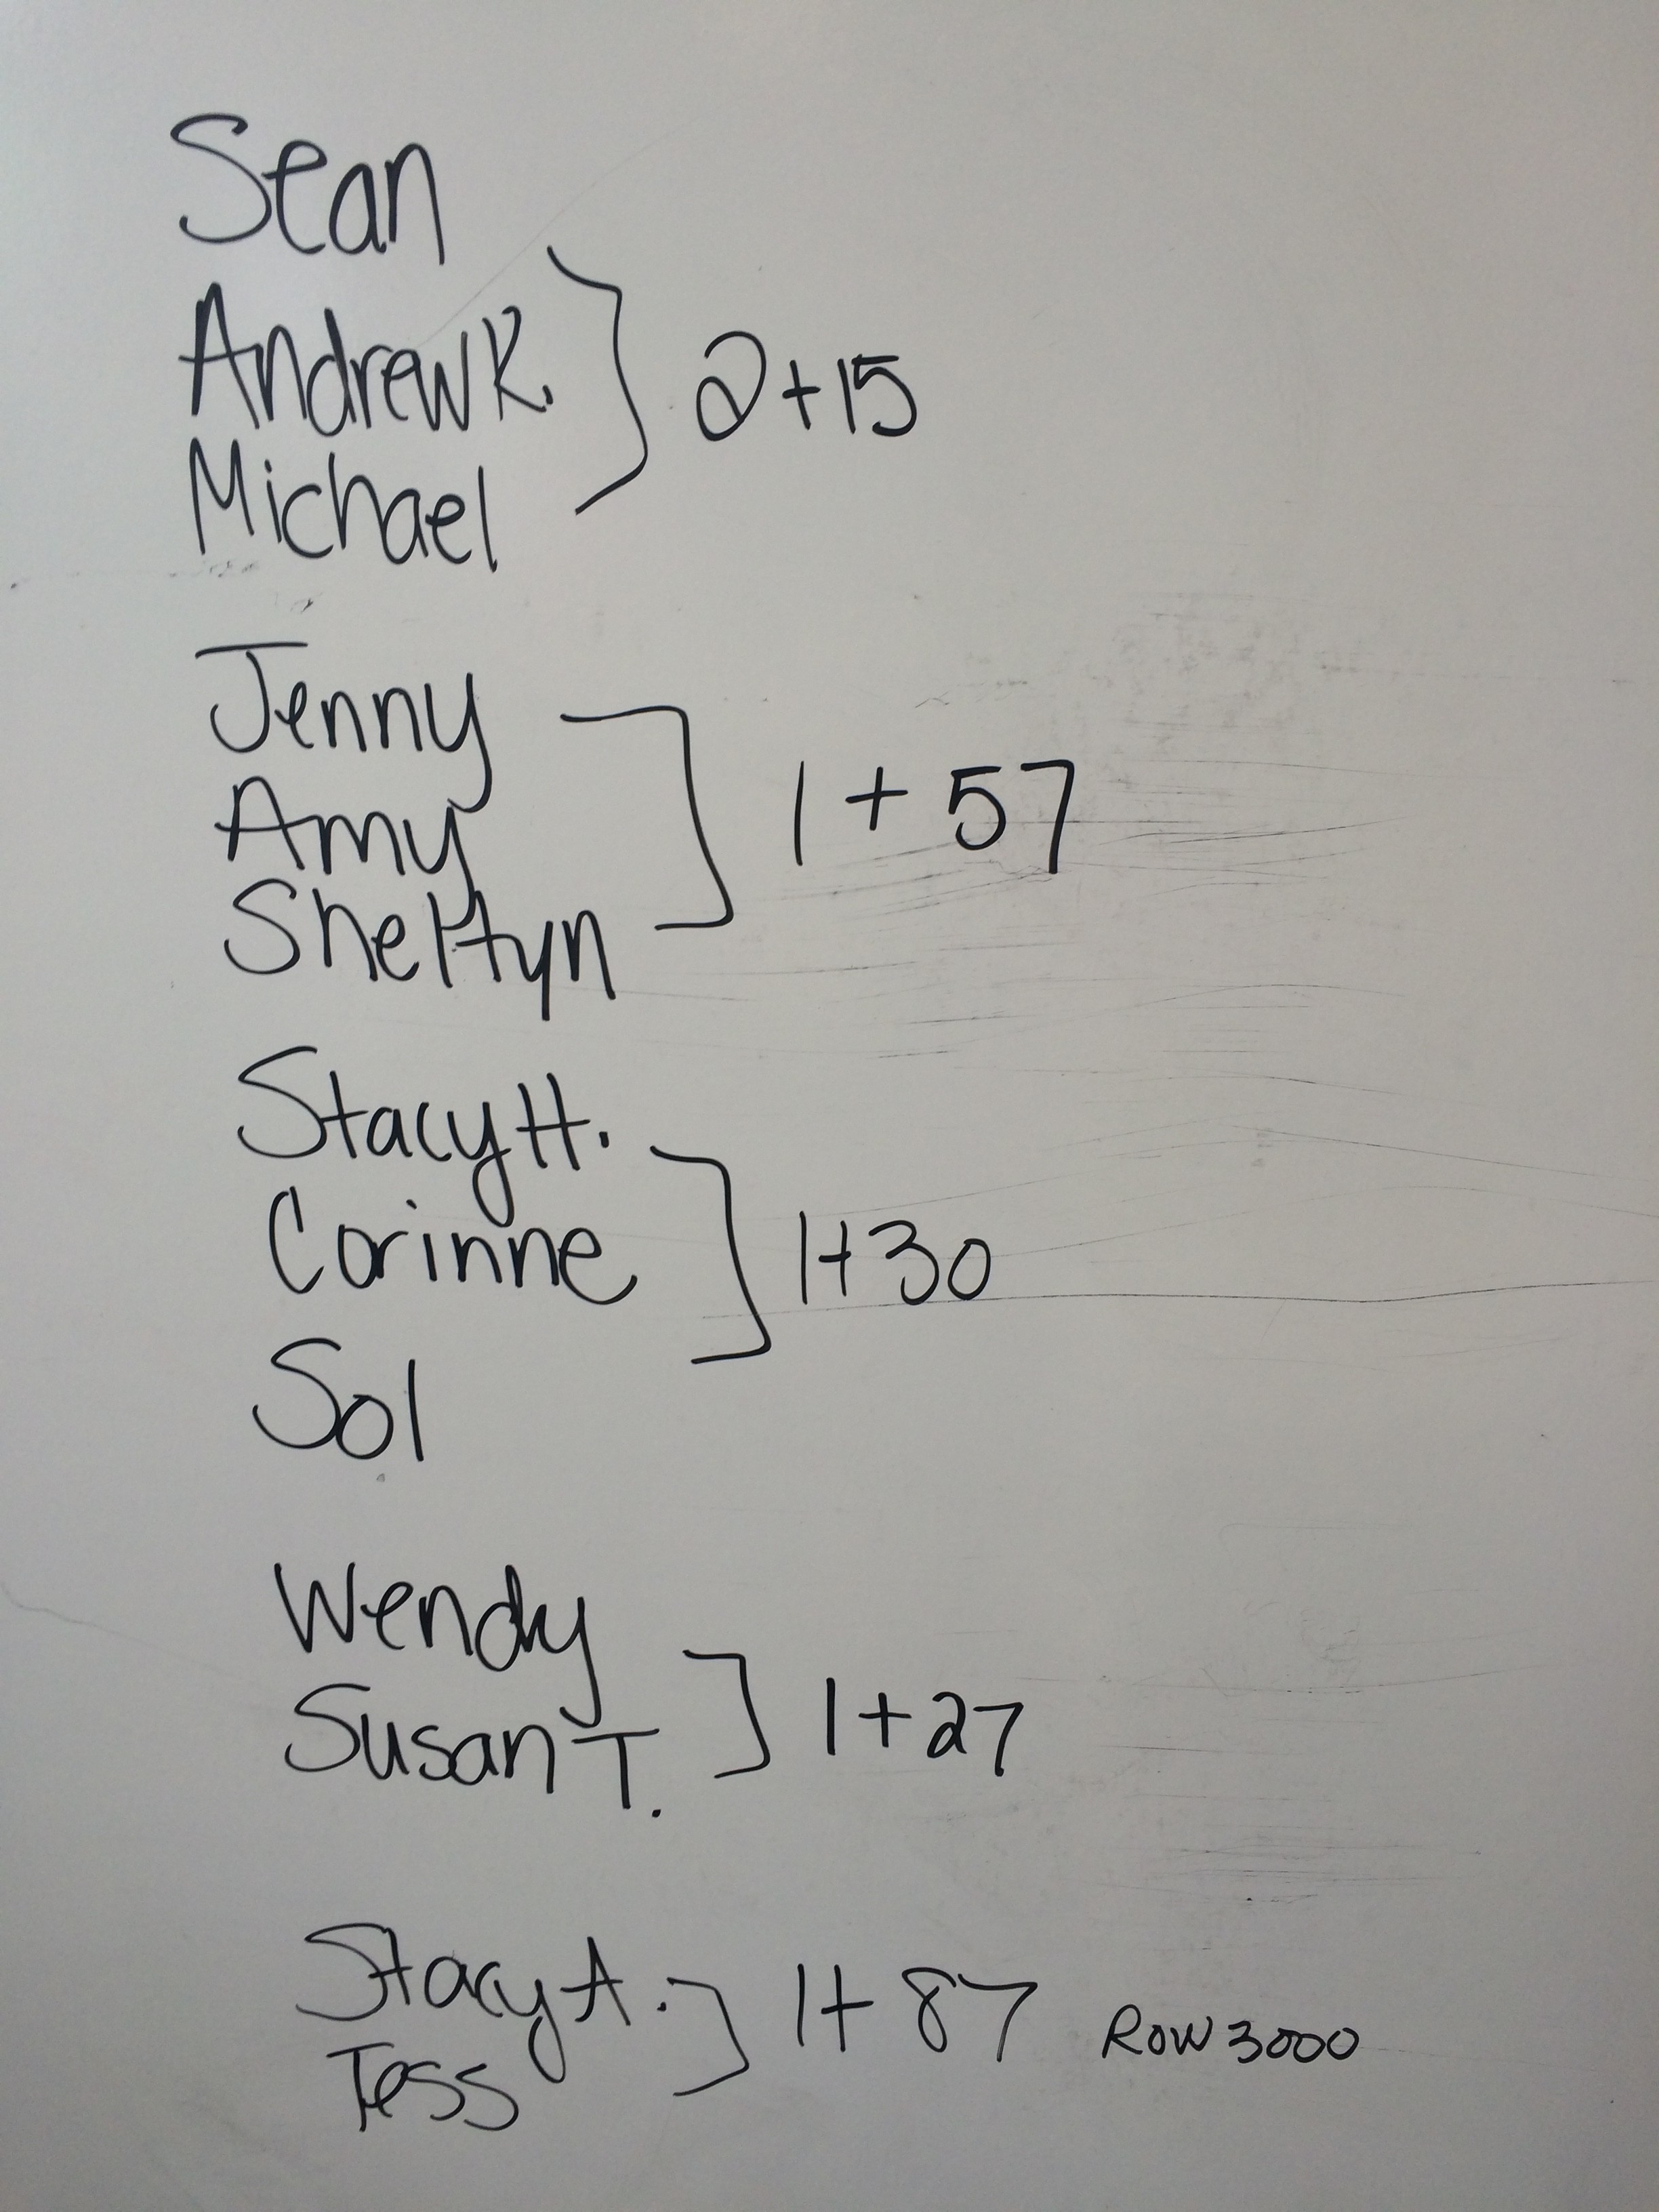 Sean
Andrew K.
Michael
2+15
Jenny
Amy
Sheltyn
1 + 57
Stacy H.
Corinne
Sol
1+30
Wendy
Susan T.
1+27
Stacy A.
Tess
1+ 87 ROW 3000